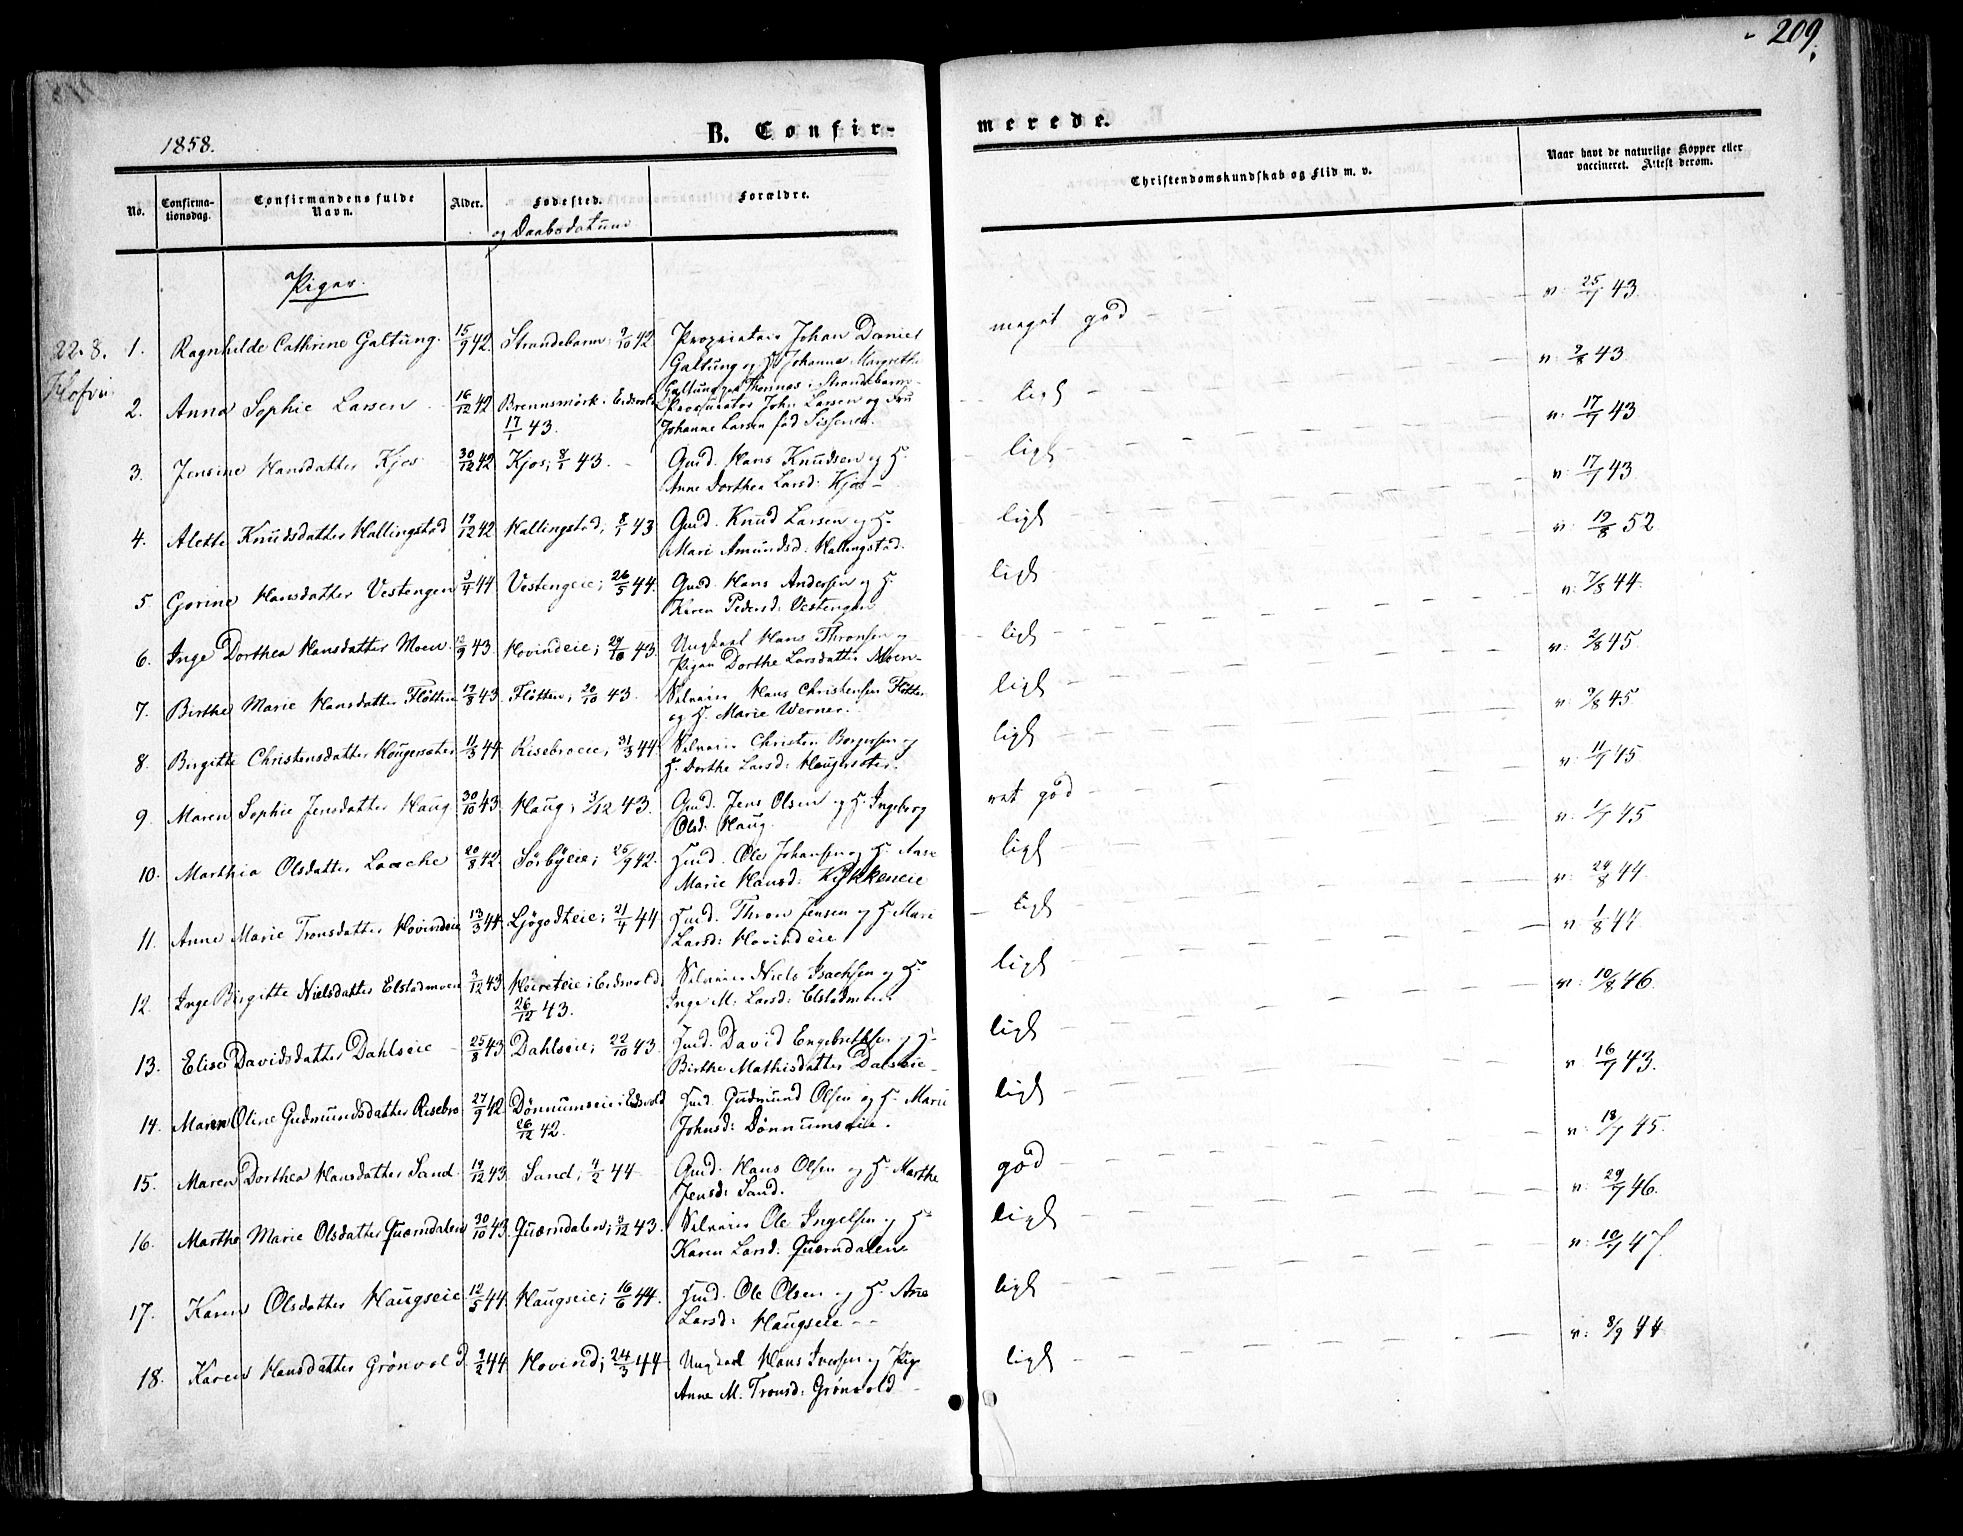 209.
1858.
B. Confirmerede.
No.
Confirmationsdag.
Confirmandens fulde Navn.
Alder.
Fødested.
og Daabsdatum
Forældre.
Christendomskundskab og Flid m. v.
Naar havt de naturlige Kopper eller vaccineret. Attest derom.
Piger.
22-8.
1. Ragnhilde Cathrine Galtung. 15/9 42. Strandebarm; 9/10 42 Proprietair Johan Daniel
Galtung og H. Johanne Margrethe
Galtung paa Thornæs i Strandebarm
meget god
v: 25/7 43.
2. Anna Sophie Larsen 16/12 42 Brennsmork i Eidsvold Procurator John Larsen og Fru
17/1 43. Johanne Larsen fød
ligt
v: 9/8 43
3. Jensine Hansdatter Kjos 30/12 42 Kjos; 8/1 43. Gmd. Hans Knudsen og H.
Anne Dorthea Larsd: Kjos
ligt
v: 17/7 43
4. Alette Knudsdatter Hallingstad 19/12 42 Hallingstad; 8/1 43 Gmd. Knud Larsen og H.
Mari Amundsd: Hallingstad.
ligt
v: 17/7 43
5 Gorine Hansdatter Vestengen 3/4 44 Vestengeie; 26/5 44. Gmd. Hans Andersen og H.
Karen Pedersd: Vestengen
ligt
v: 19/8 52
6. Inge Dorthea Hansdatter Moen 12/9 43. Hovindeie; 29/10 43. Ungkarl Hans Thronsen og
Pigen Dorthe Larsdatter Moen
ligt
v: 7/8 44.
7. Birthe Marie Hansdatter Fløtten 19/8 43. Fløtten; 20/10 43. Selveier Hans Christensen Fløtten
og H. Marie Werner.
ligt
v: 2/8 45
8. Birgitte Christensdatter Haugersæter 11/3 44 Risebroeie; 31/3 44. Selveier Christen Borgersen og
H. Dorthe Larsd: Haugersæter.
ligt
v: 9/8 45
9. Maren Sophie Jensdatter Haug 30/10 43. Haug; 3/12 43. Gmd. Jens Olsen og H. Ingeborg
Olsd. Haug.
ret god
v: 11/7 45
10. Marthia Olsdatter Laache 20/8 42. Sørbyeie; 25/9 42. Hmd. Ole Johansen og H. Anne
Marie Hansd: Kykkeneie
ligt
v: 1/7 45
11. Anne Marie Tronsdatter Hovindeie 13/3 44. Ljøgodteie; 21/4 44 Hmd. Thron Jensen og H. Mari
Larsd: Hovindeie
ligt
v: 24/8 44.
12. Inge Birgitte Nielsdatter Elstadmoen 3/12 43 i Eidsvold Selveier Niels Isachsen og H.
26/12 43. Inge M: Larsd: Elstadmoen
ligt
v: 1/8 44.
13. Elise Davidsdatter Dahlseie 25/8 43 Dahlseie; 22/10 43. Hmd. David Engebrethsen og H.
Birthe Mathisdatter Dalseie
ligt
v: 10/8 46.
14. Maren Oline Gudmundsdatter Risebro 27/9 42 Dønnumseie i Eidsvold Hmd. Gudmund Olsen og H. Marie
26/12 42. Johnsd: Dønnumseie.
ligt
v: 16/7 43.
15. Maren Dorthea Hansdatter Sand 19/12 43. Sand; 4/2 44 Gmd. Hans Olsen og H. Marthe
Jensd: Sand.
god
v: 18/7 45.
16. Marthe Marie Olsdatter Quærndalen 30/10 43. Quærndalen; 3/12 43. Selveier Ole Ingelsen og H.
Karen Larsd: Quærndalen
ligt
v: 29/7 46.
17. Karen Olsdatter Haugseie 12/5 44. Haugseie; 16/6 44. Hmd. Ole Olsen og H. Ane
Larsd: Haugseie
ligt
v: 10/7 47.
18. Karen Hansdatter Grønvold 2/2 44 Hovind; 24/3 44 Ungkarl Hans Iversen og Pige
Anne M. Tronsd: Grønvold
ligt
v: 8/9 44